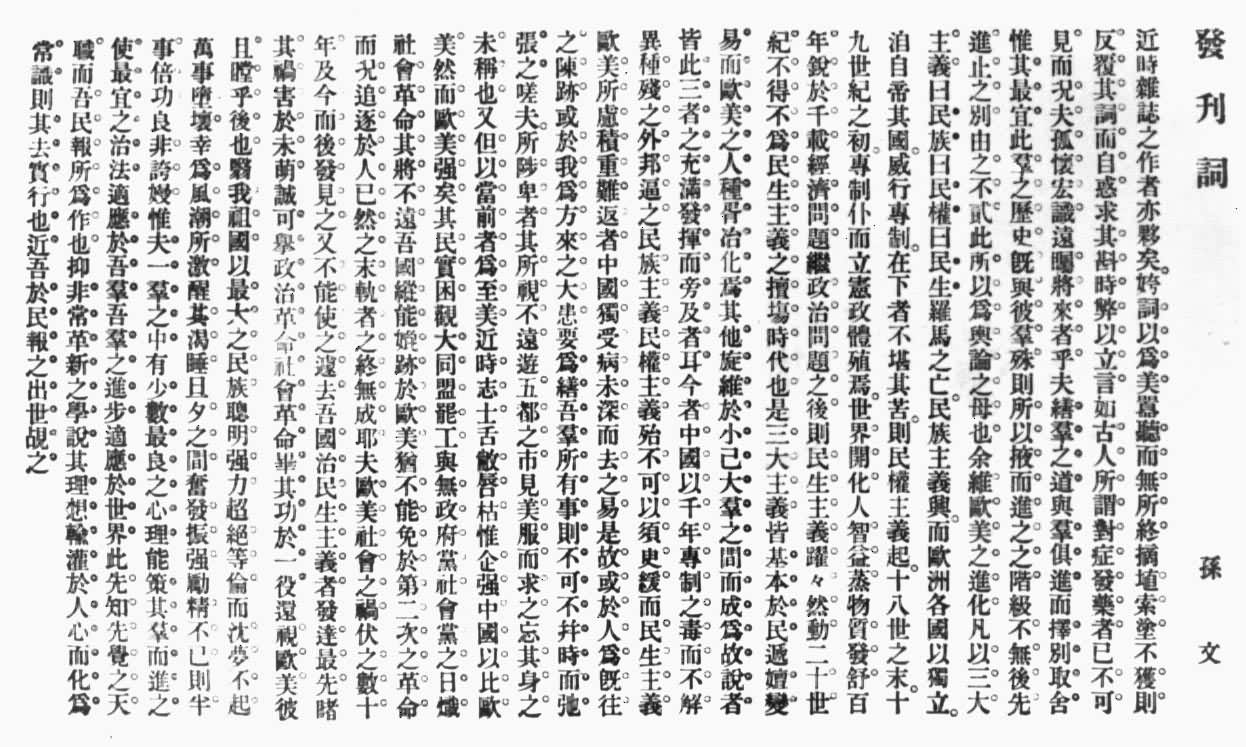 發刊詞
孫文
近時雜誌之作者亦夥矣。姱詞以為美囂聽而無所終摘埴索塗不獲則
反覆其詞而自惑求其斟時弊以立言如古人所謂對症發藥者已不可
見而况夫孤懷宏識遠矚將來者乎夫繕羣之道與羣俱進而擇別取舍
惟其最宜此羣之歷史既與彼羣殊則所以掖而進之之階級不無後先
進止之別由之不貳此所以為輿論之母也余維歐美之進化凡以三大
主義曰民族曰民權曰民生羅馬之亡民族主義興而歐洲各國以獨立。
洎自帝其國。威行專制。在下者不堪其苦。則民權主義起。十八世之末。十
九世紀之初。專制仆而立憲政體殖焉。世界開化人智益蒸物質發舒百
年銳於千載經濟問題繼政治問題之後則民生主義躍々然動二十世
紀不得不為民生主義之擅塲時代也是三大主義皆基本於民遞嬗變
易而歐美之人種胥冶化焉其他旋維於小己大羣之間而成為故說者
皆此三者之充滿發揮而旁及者耳今者中國以千年專制之毒而不解
異種殘之外邦逼之民族主義民權主義殆不可以須臾緩而民生主義
歐美所慮積重難返者中國獨受病未深而去之易是故或於人為既往
之陳跡或於我為方來之大患要為繕吾羣所有事則不可不幷時而弛
張之嗟夫所陟卑者其所視不遠遊五都之市見美服而求之忘其身之
未稱也又但以當前者為至美近時志士舌敝唇枯惟企强中國以比歐
美然而歐美强矣其民實困觀大同盟罷工與無政府黨社會黨之日熾
社會革命其將不遠吾國縱能媲跡於歐美猶不能免於第二次之革命
而况追逐於人已然之末軌者之終無成耶夫歐美社會之禍伏之數十
年及今而後發見之又不能使之遽去吾國治民生主義者發達最先睹
其禍害於未萌誠可舉政治革命社會革命畢其功於一役還視歐美彼
且瞠乎後也翳我祖國以最大之民族聰明强力超絕等倫而沈夢不起
萬事墮壞幸為風潮所激醒其渴睡旦夕之間奮發振强勵精不已則半
事倍功良非誇嫚惟夫一羣之中有少數最良之心理能策其羣而進之
使最宜之治法適應於吾羣吾羣之進步適應於世界此先知先覺之天
職而吾民報所為作也抑非常革新之學說其理想輸灌於人心而化為
常識則其去實行也近吾於民報之出世覘之